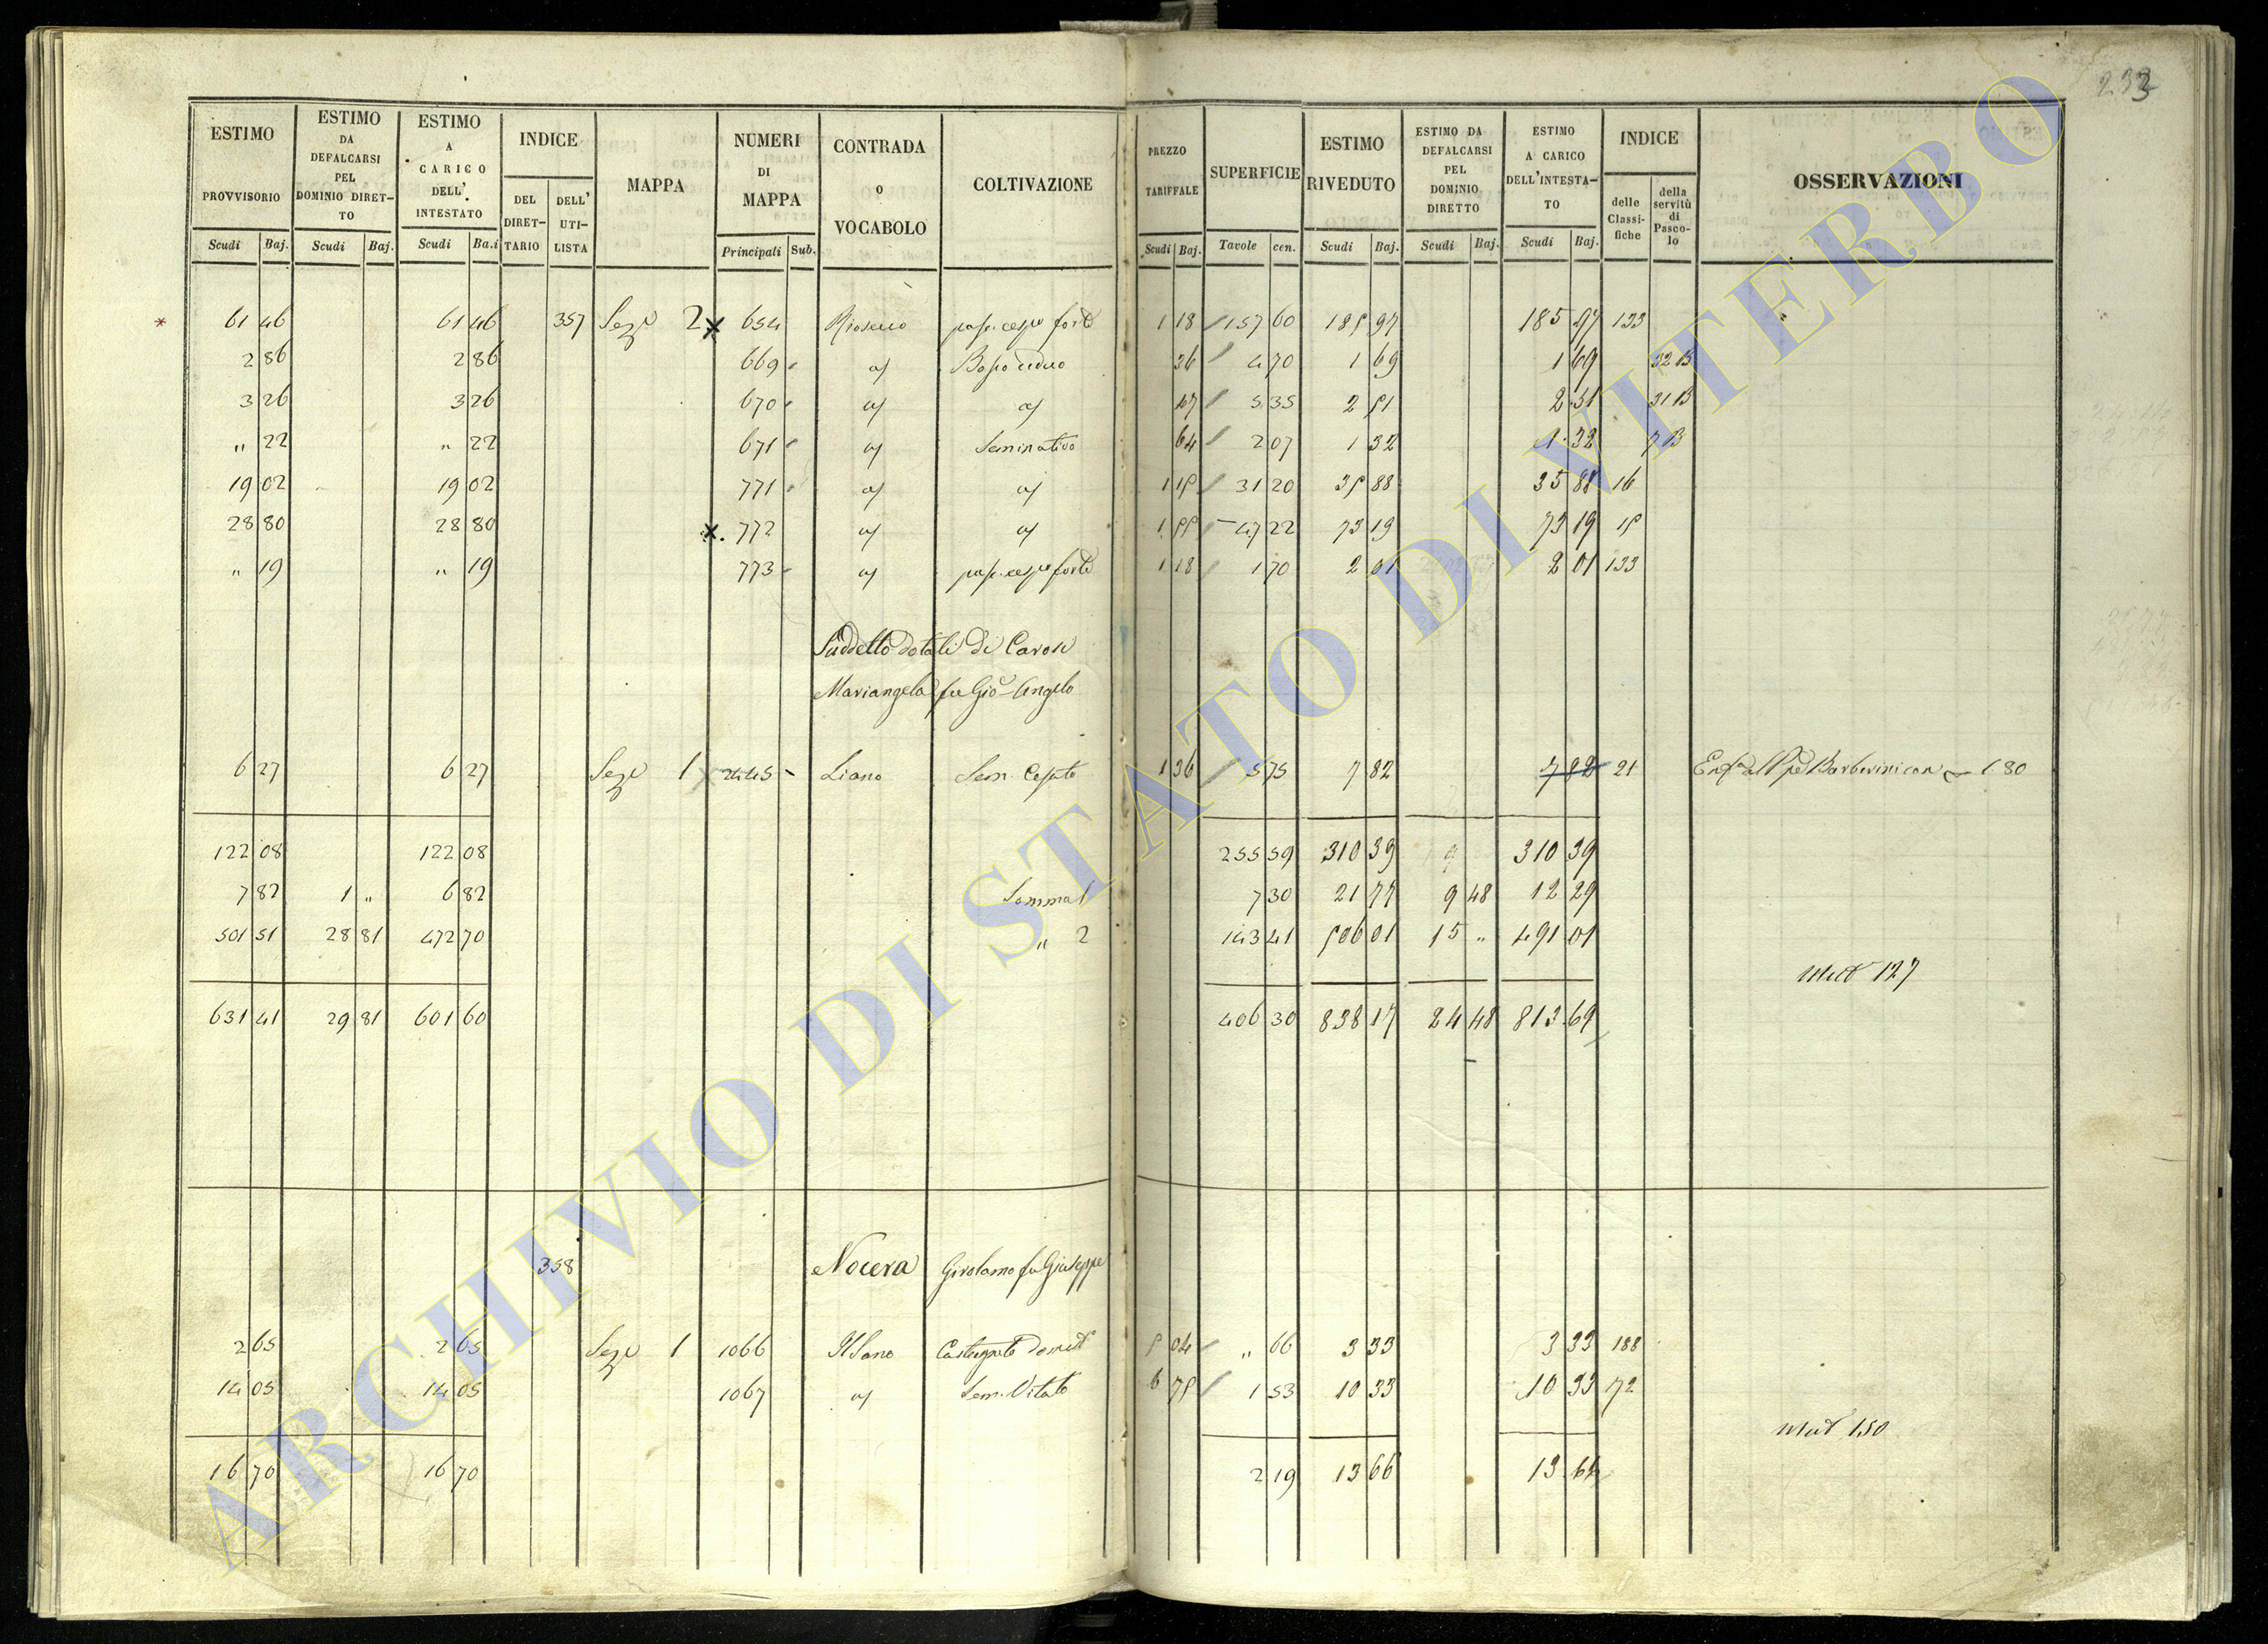 233
ESTIMO PROVVISORIO Scudi Baj.
ESTIMO DA DEFALCARSI PEL DOMINIO DIRET-TO Scudi Baj.
ESTIMO A CARICO DELL' INTESTATO Scudi Ba.i
INDICE DEL DIRET-TARIO DELL' UTI-LISTA
MAPPA
NUMERI DI MAPPA Principali Sub.
CONTRADA O VOCABOLO
COLTIVAZIONE
PREZZO TARIFFALE Scudi Baj.
SUPERFICIE Tavole cen.
ESTIMO RIVEDUTO Scudi Baj.
ESTIMO DA DEFALCARSI PEL DOMINIO DIRETTO Scudi Baj.
ESTIMO A CARICO DELL'INTESTA-TO Scudi Baj.
INDICE delle Classi-fiche della servitù di Pasco-lo
OSSERVAZIONI
61 46 61 46 357 Sez.e 2 654 1 18 157 60 185 97 185 97 133
2 86 2 86 669 Bosco ceduo 36 4 70 1 69 1 69 32 B
3 26 3 26 670 47 5 35 2 51 2 51 31 B
" 22 " 22 671 Seminativo 64 2 07 1 32 1 32 7 B
19 02 19 02 771 1 15 31 20 35 88 35 88 16
28 80 28 80 772 1 55 47 22 73 19 73 19 15
" 19 " 19 773 1 18 1 70 2 01 2 01 133
Suddetto dotali di Carosi
Mariangela fu Gio Angelo
6 27 6 27 Sez.e 1 2445 Liano Sem. 1 36 5 75 7 82 7 82 21 Barberini con 1.80
122 08 122 08 255 59 310 39 310 39
7 82 1 " 6 82 Somma 1 7 30 21 77 9 48 12 29
501 51 28 81 472 70 " 2 143 41 506 01 15 " 491 01
Mut 127
631 41 29 81 601 60 406 30 838 17 24 48 813 69
358 Nocera Girolamo fu Giuseppe
2 65 2 65 Sez.e 1 1066 5 04 " 66 3 33 3 33 188
14 05 14 05 1067 Sem. Vitato 6 75 1 53 10 33 10 33 72
Mut 150
16 70 16 70 2 19 13 66 13 66
ARCHIVIO DI STATO DI VITERBO